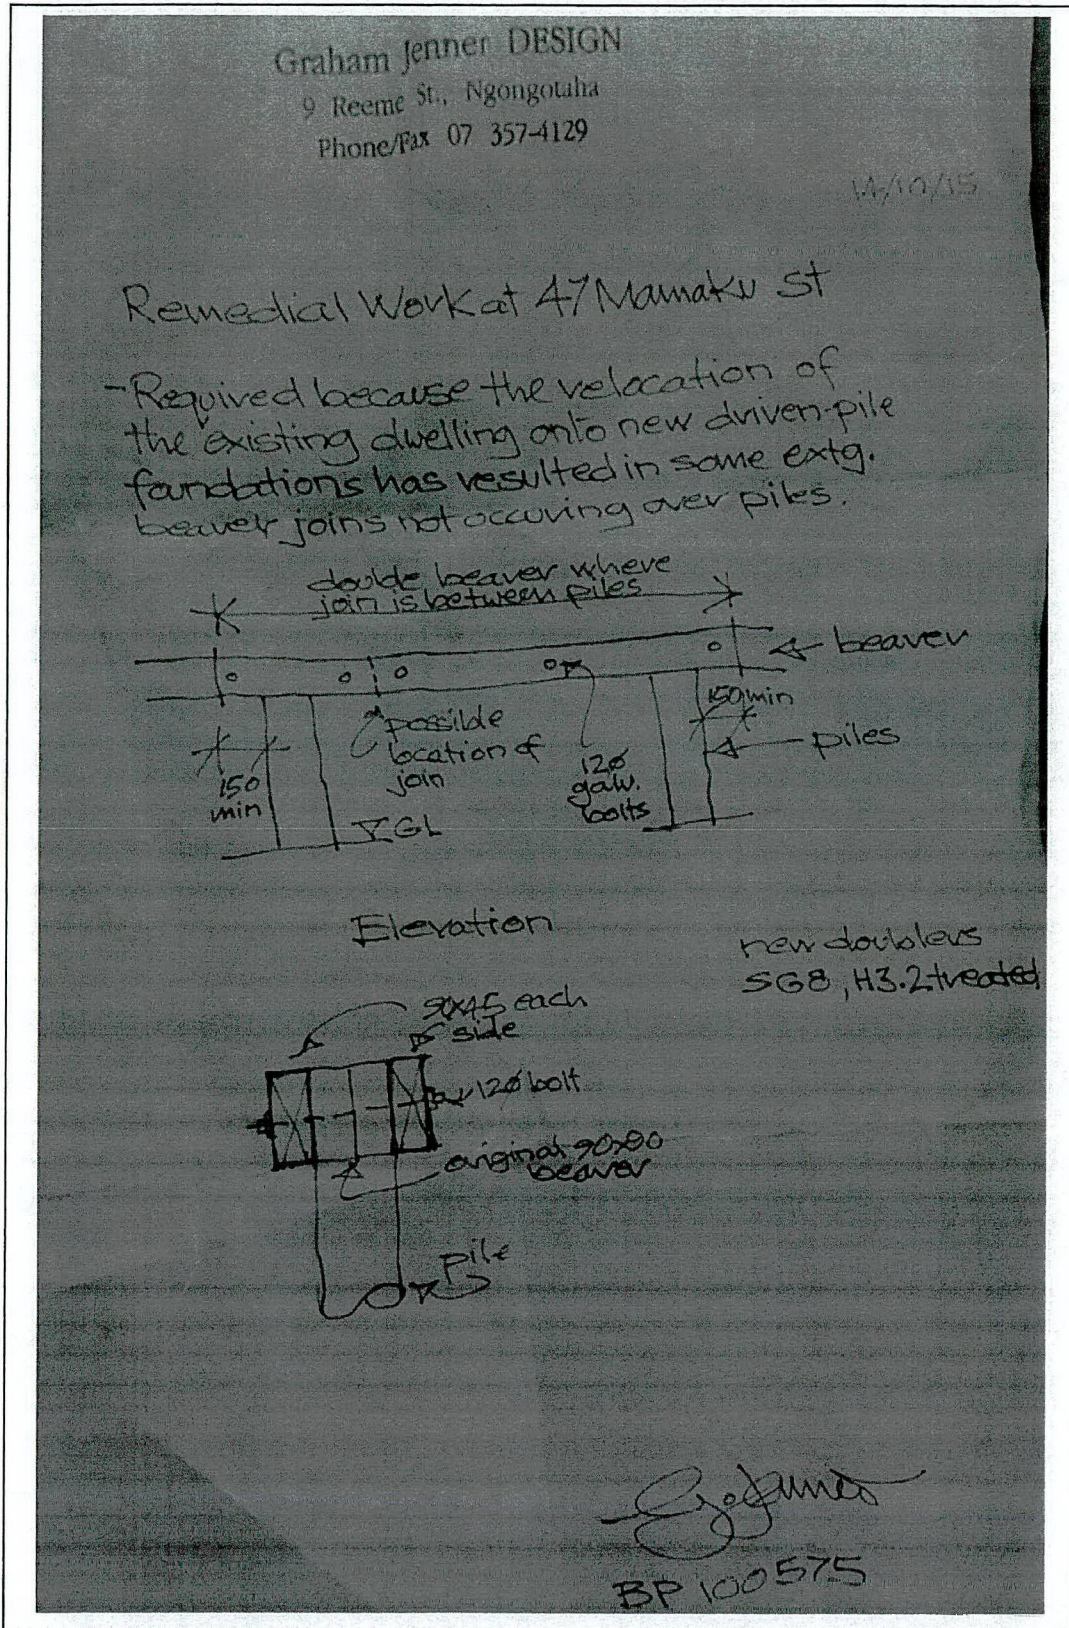 Graham Jenner DESIGN
9 Reeme St., Ngongotaha
Phone/Fax 07 357-4129
14/10/15
Remedial Work at 47 Mamaku St
- Required because the relocation of
the existing dwelling onto new driven-pile
foundations has resulted in some extg.
bearer joins not occuring over piles.
double bearer where
join is between piles
bearer
150 min
possible
location of
join
piles
150
min
12ø
galv.
bolts
GL
Elevation
new doublers
SG8, H3.2 treated
90x45 each
side
12ø bolt
original 90x90
bearer
pile
G. Jenner
BP 100575